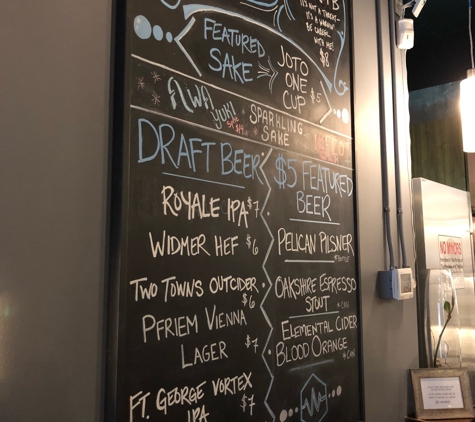 IT'S NOT A THREAT-
IT'S A WARNIN'
BE CAREFUL
WITH ME!
$8
FEATURED
SAKE
JOTO
ONE
CUP
$5
AWA
YUKI
SPARKLING
SAKE
DRAFT BEER
ROYALE IPA $7
WIDMER HEF $6
TWO TOWNS OUTCIDER
$6
PFRIEM VIENNA
LAGER $7
FT. GEORGE VORTEX
IPA $7
$5 FEATURED
BEER
PELICAN PILSNER
*BOTTLE
OAKSHIRE ESPRESSO
STOUT *CAN
ELEMENTAL CIDER
BLOOD ORANGE *CAN
NO MINORS